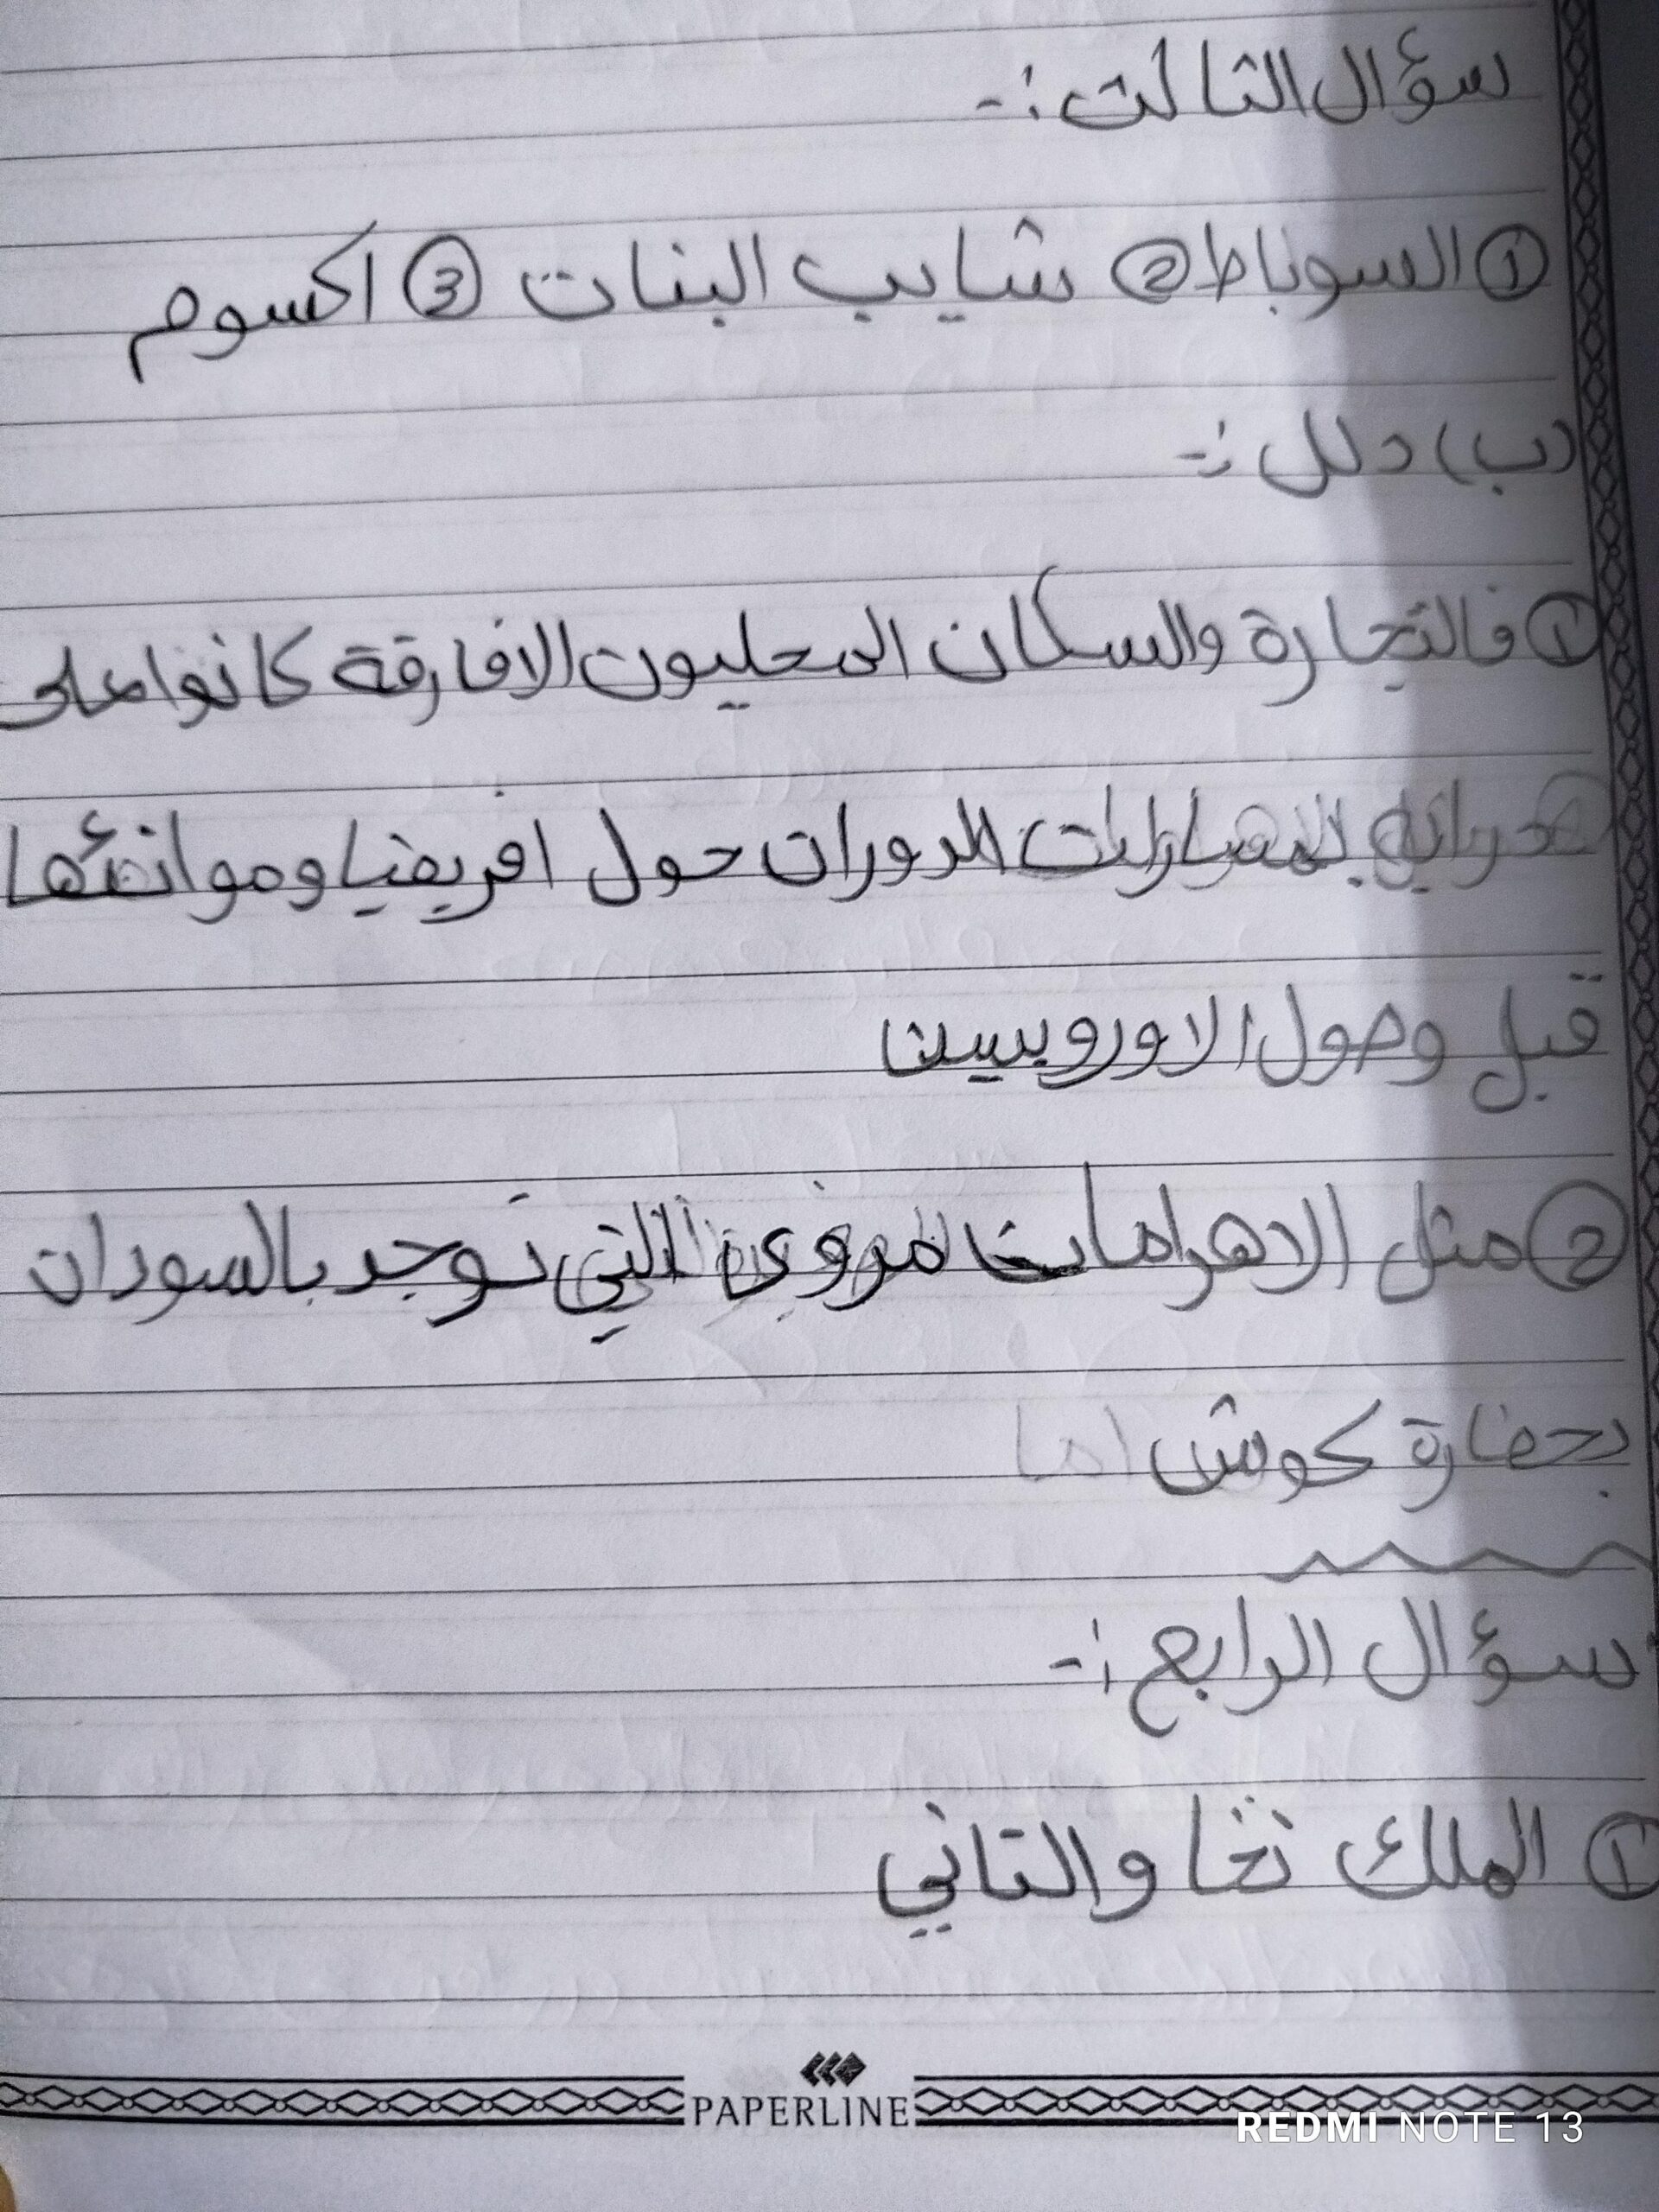 سؤال الثالث :-
① السوباط ② شايب البنات ③ اكسوم
(ب) دلل :-
① فالتجارة والسكان المحليون الافارقة كانوا على
دراية بمسارات الدوران حول افريقيا وموانئها
قبل وصول الاوروبيين
② مثل الاهرامات مروى التي توجد بالسودان
بحضارة كوش اما
سؤال الرابع :-
① الملك نخاو الثاني
PAPERLINE
REDMI NOTE 13